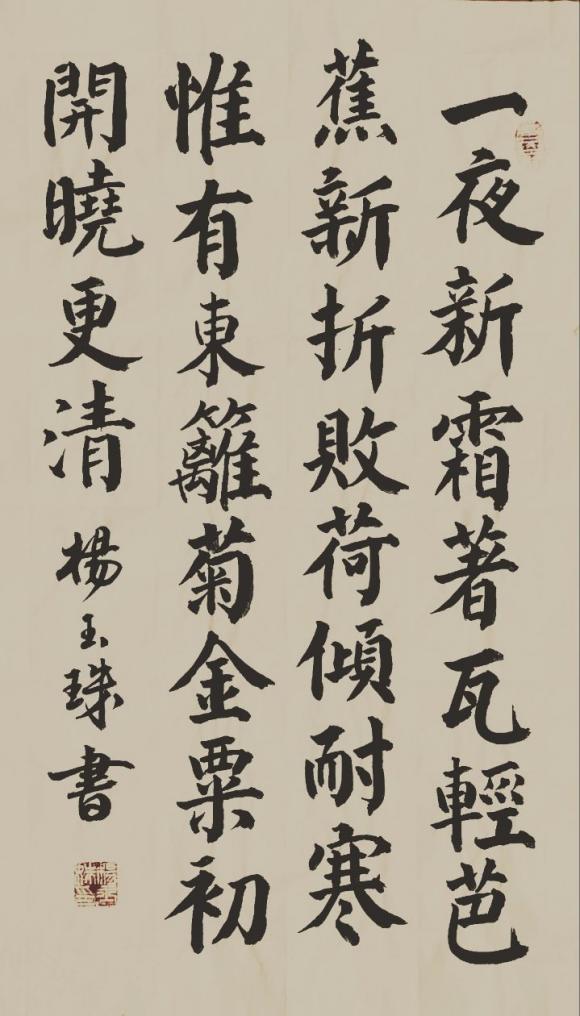 一夜新霜著瓦輕芭
蕉新折敗荷傾耐寒
惟有東籬菊金粟初
開曉更清 楊玉珠書